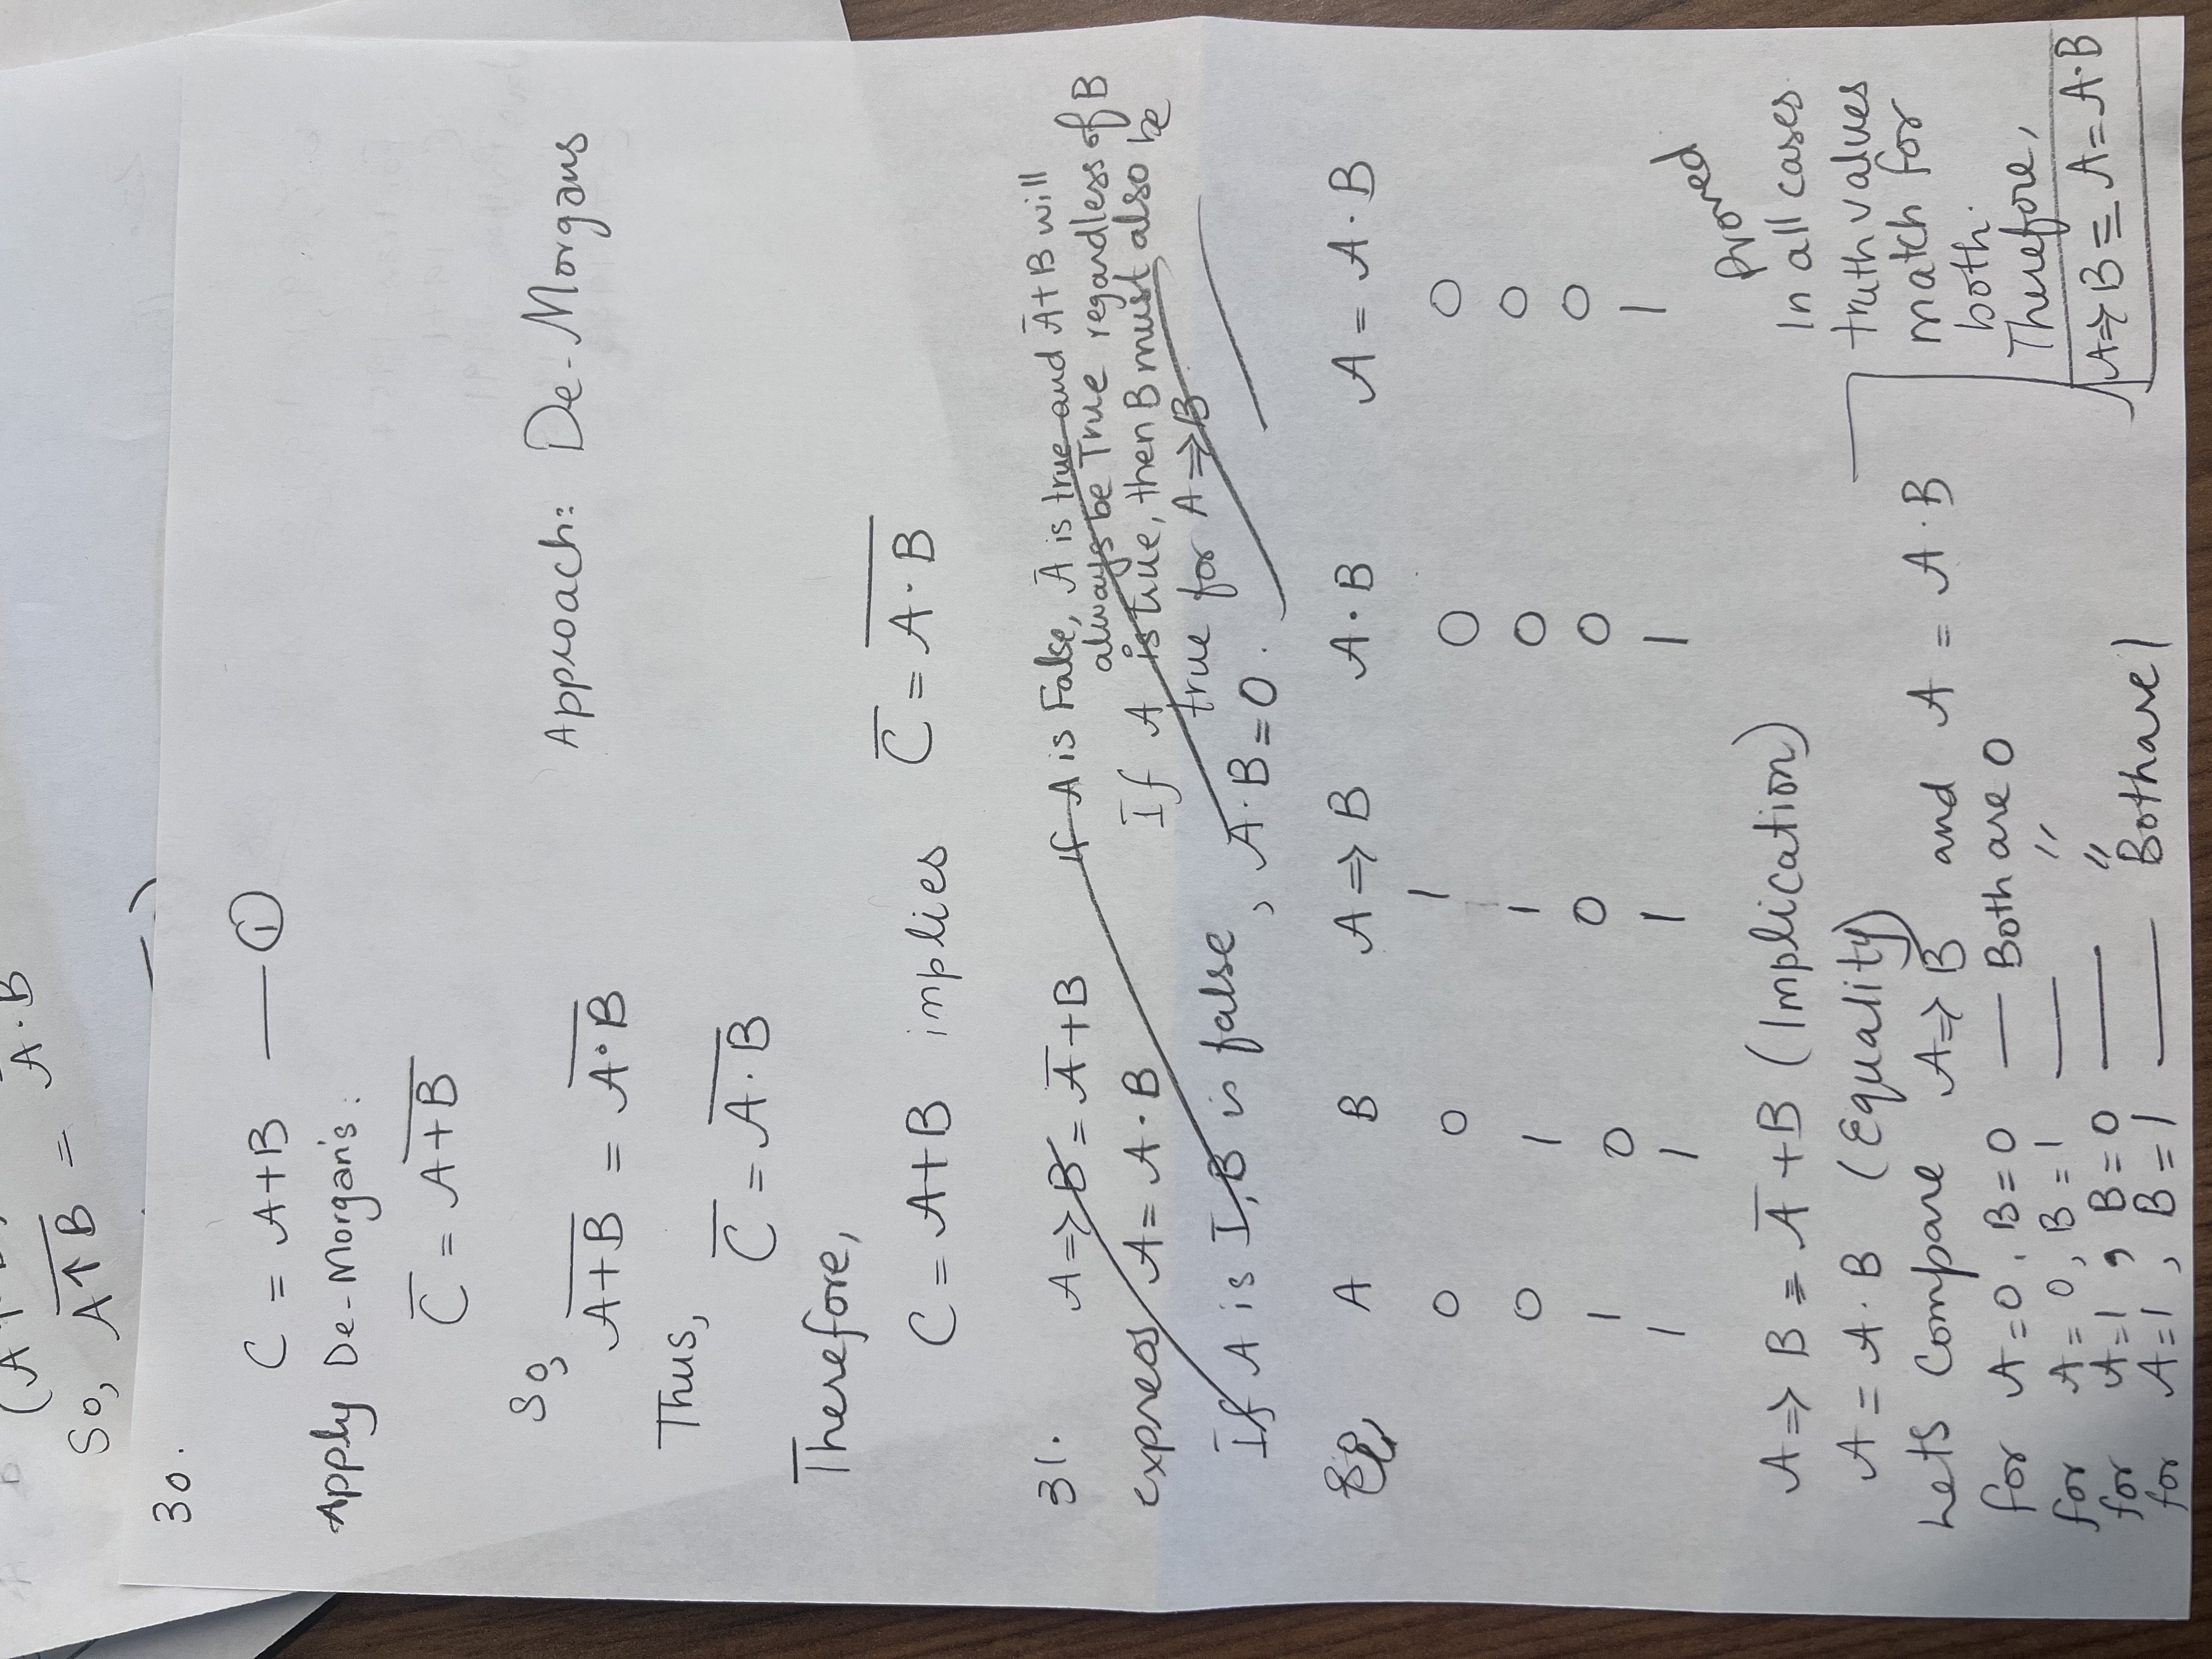 So, \overline{A↑B} = A·B
30.
C = A+B — ①
Apply De-Morgan's:
\overline{C} = A\overline{+B}
So,
\overline{A+B} = \overline{A·B}
Approach: De-Morgans
Thus,
\overline{C} = \overline{A·B}
Therefore,
C = A+B implies \overline{C} = \overline{A·B}
31. A⇒B = \overline{A}+B
If A is False, \overline{A} is true and \overline{A}+B will
always be True regardless of B
express A = A·B
If A is true, then B must also be
true for A⇒B
If A is I, B is false, A·B=0.
A B A⇒B A·B A = A·B
0 0 1 0 0
0 1 1 0 0
1 0 0 0 0
1 1 1 1 1
A⇒B ≡ \overline{A}+B (Implication)
A = A·B (Equality)
Lets Compare A⇒B and A = A·B
for A=0, B=0 — Both are 0
for A=0, B=1 — "
for A=1, B=0 — "
for A=1, B=1 — Both are 1
Proved
In all cases
truth values
match for
both.
Therefore,
A⇒B ≡ A=A·B